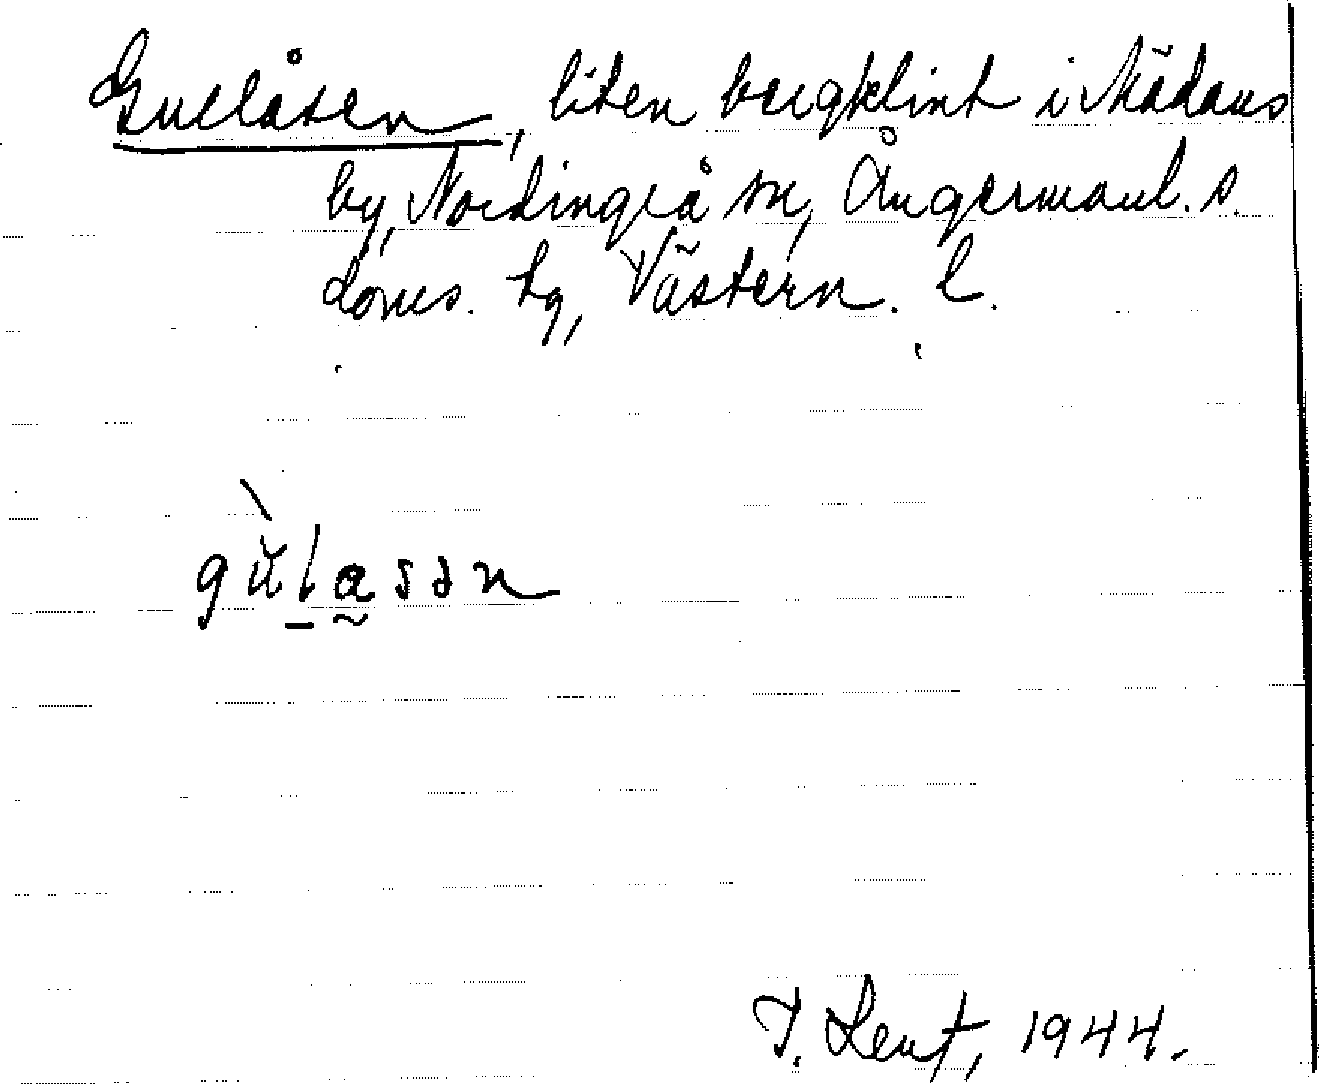 Gullåsen, liten bergklint i Mädans
by, Nordingrå sn, Ångermanl. s.
doms. tg, Västern. l.
gùlasən
1944.